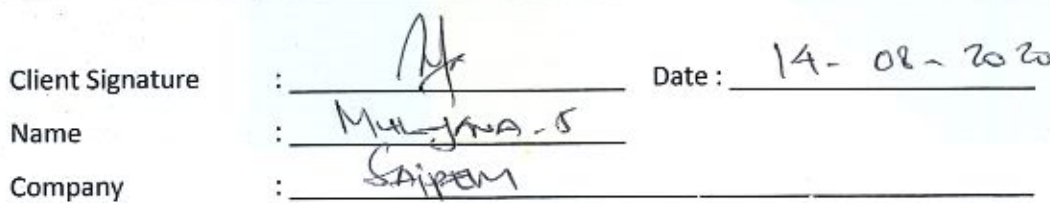 Client Signature : Date : 14- 08- 2020
Name : MULJANA-S
Company : SAIPEM